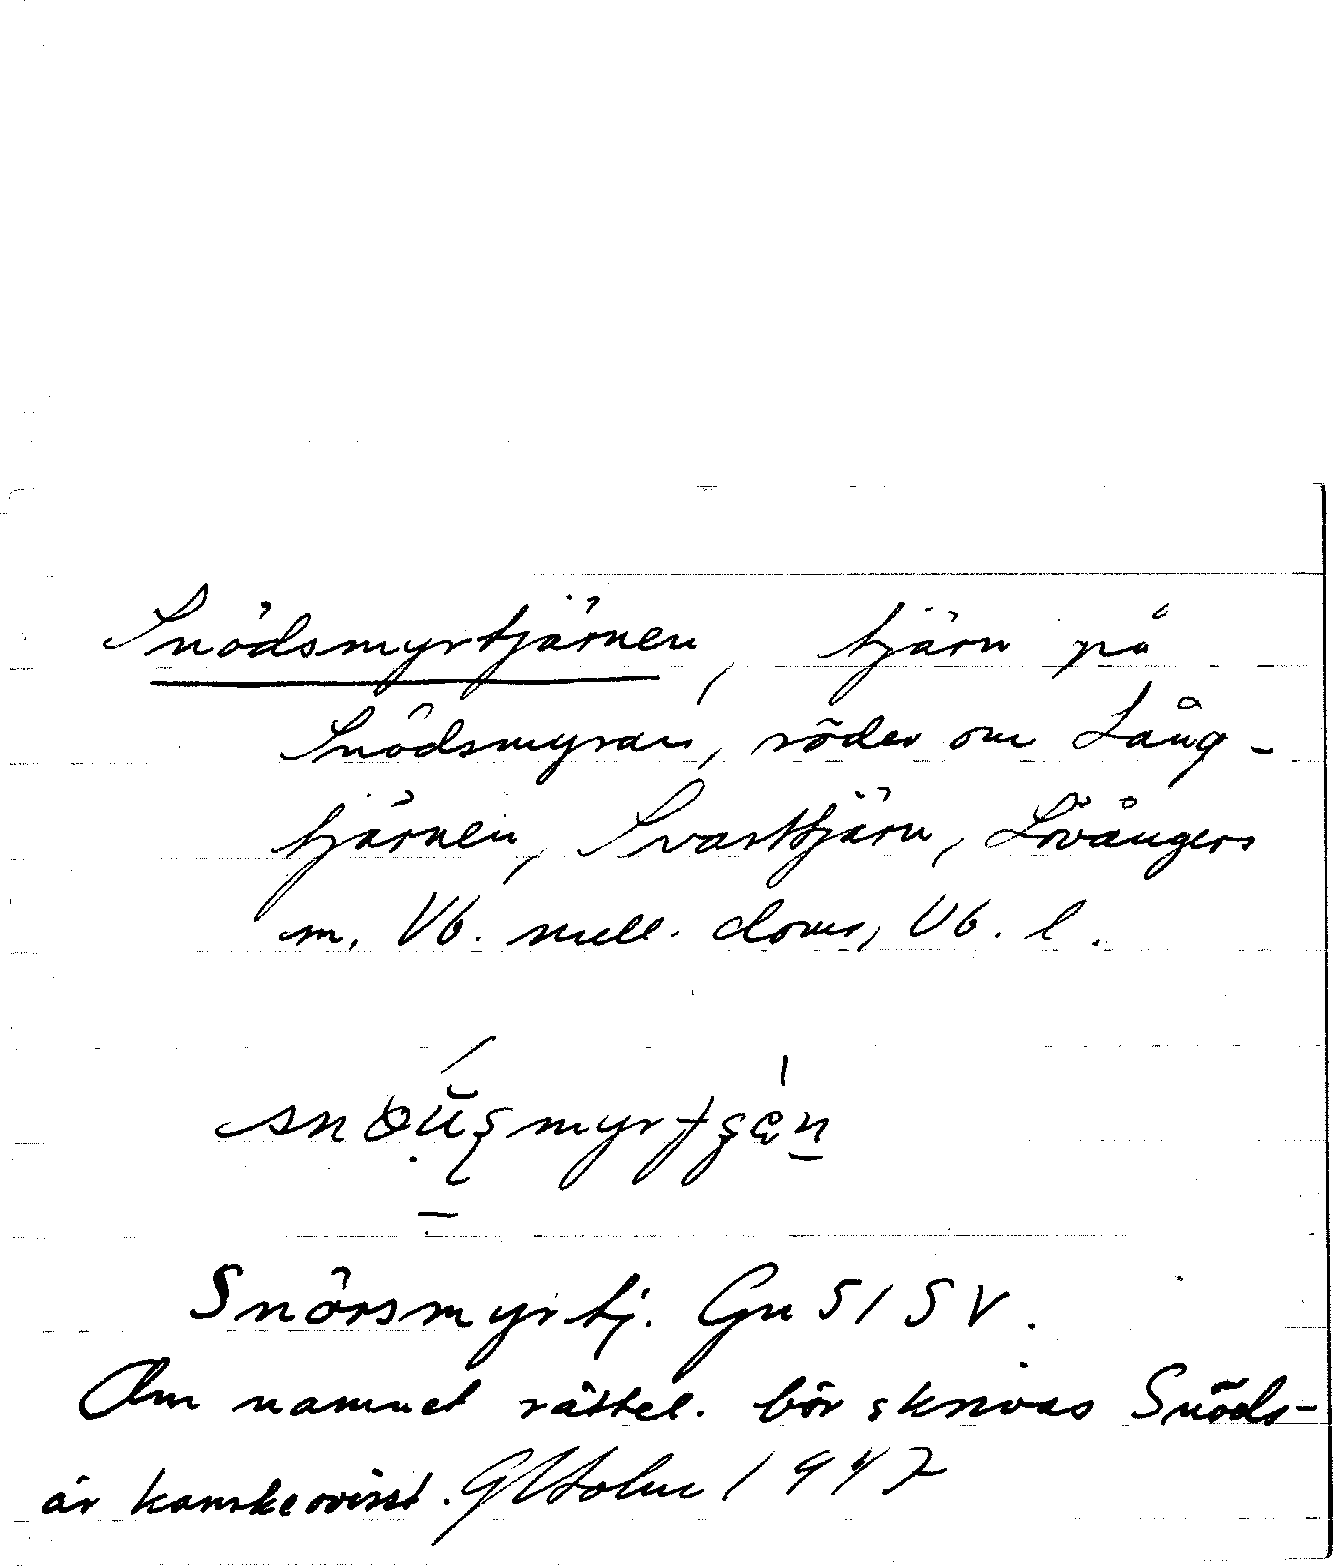 Snödsmyrtjärnen, tjärn på
Snödsmyran, söder om Lång-
tjärnen, Svarttjärn, Lövångers
m. Vb. mell. doms, Vb. l.
Snörsmyrtj. Gn 51 SV.
Om namnet rättel. bör skrivas Snöds-
är kanske ovisst. G Holm 1947